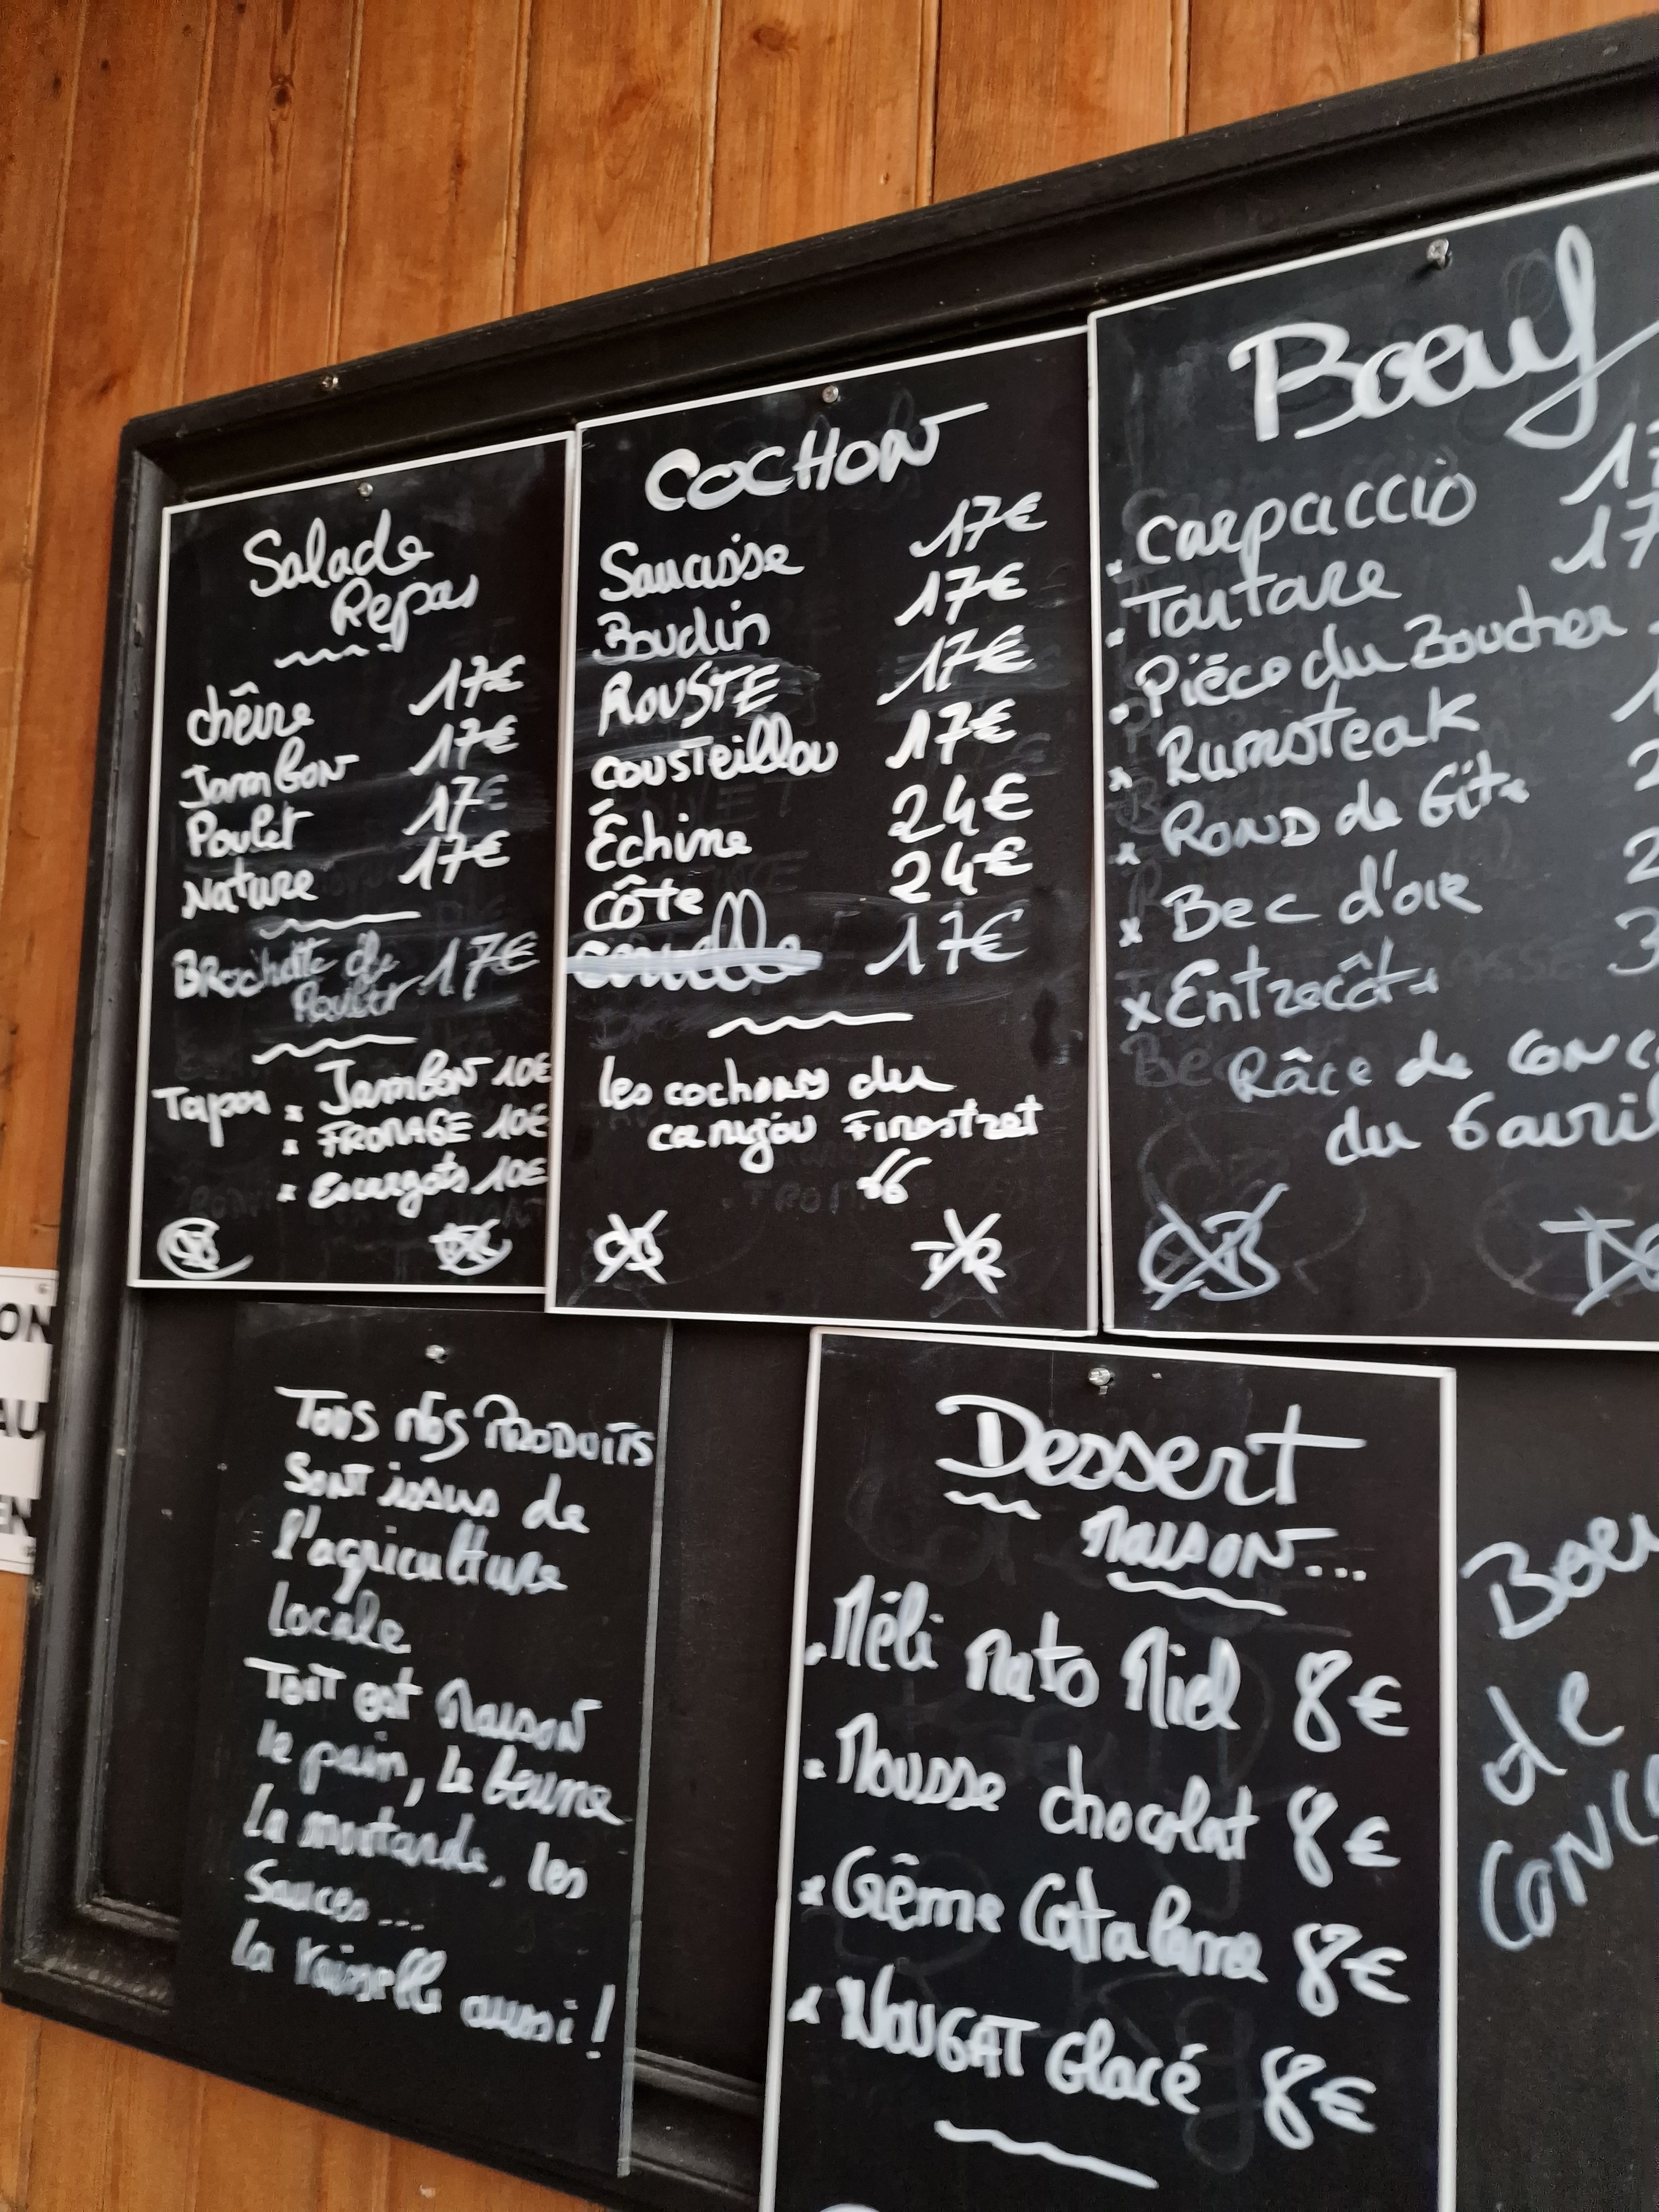 Salade
Repas
chèvre 17€
Jambon 17€
Poulet 17€
Nature 17€
Brochette de 17€
Poulet
Tapas x Jambon 10€
x FROMAGE 10€
x Escargots 10€
CB
COCHON
Saucisse 17€
Boudin 17€
ROUSTE 17€
cousteillou 17€
Échine 24€
Côte 24€
17€
les cochons du
canigou Finestret
66
CB
Boeuf
Carpaccio 17
Tartare 17
Pièce du Boucher
x Rumsteak 1
x Rond de Gîte 2
x Bec d'oie 2
x Entrecôte 3
Râce de
du 6 avril
CB
TOUS NOS PRODUITS
SONT issus de
l'agriculture
locale
TOUT est MAISON
le pain, le beurre
la moutarde, les
Sauces...
la vaisselle aussi!
Dessert
MAISON...
Méli Mato Miel 8€
Mousse chocolat 8€
x Crême Catalane 8€
x NOUGAT Glacé 8€
de
ON
AU
EN